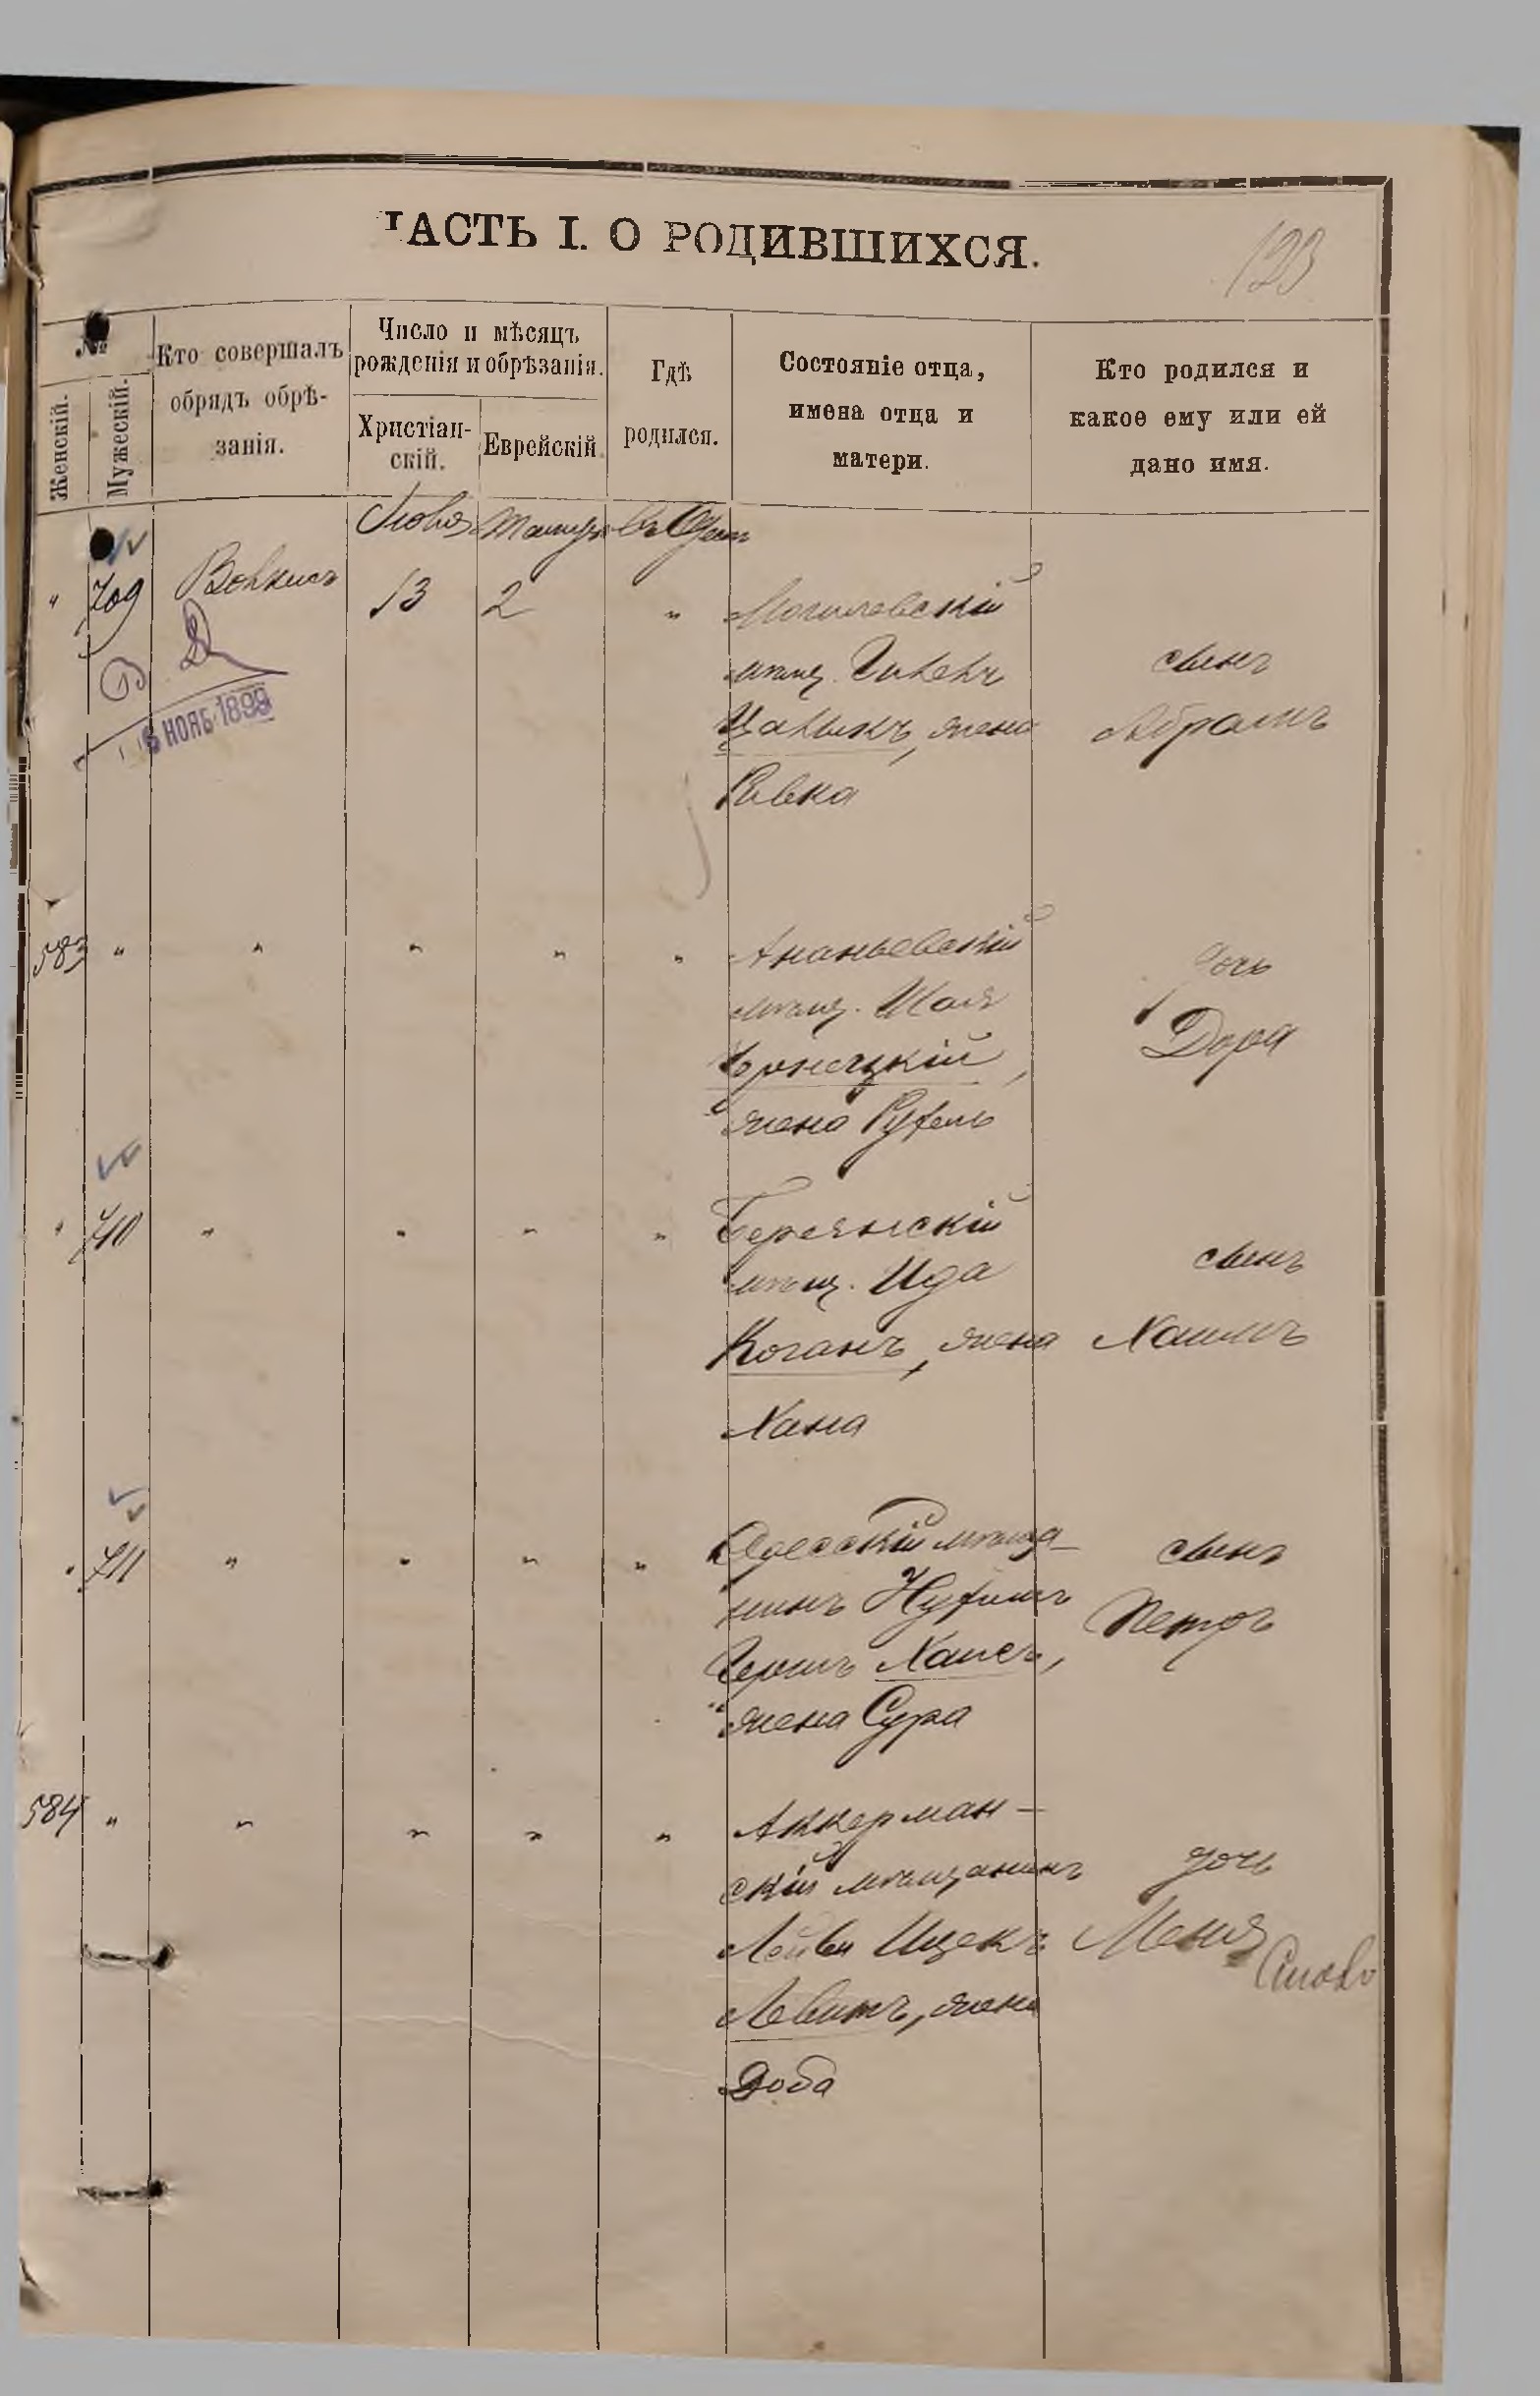 ЧАСТЬ I. О РОДИВШИХСЯ.
123
№
Женскій.
Мужескій.
Кто совершалъ
обрядъ обрѣ-
занія.
Число и мѣсяцъ
рожденія и обрѣзанія.
Христіан-
скій.
Еврейскій.
Гдѣ
родился.
Состояніе отца,
имена отца и
матери.
Кто родился и
какое ему или ей
дано имя.
Іюня
" 709
13
2
"
Могилевскій
мѣщ.
жена
Ривка
сынъ
Абрамъ
НОЯБ 1899
583 " " " " "
Ананьевскій
мѣщ. Шая
жена Рухель
дочь
Дора
" 710 " " " "
мѣщ. Ида
Коганъ, жена
Хана
сынъ
Хаимъ
" 711 " " " "
Одесскій мѣща-
нинъ Нухимъ
Гершъ Хаисъ,
жена Сура
сынъ
Петръ
584 " " " " "
Аккерман-
скій мѣщанинъ
Лейви Ицекъ
Левитъ, жена
Доба
дочь
Меня